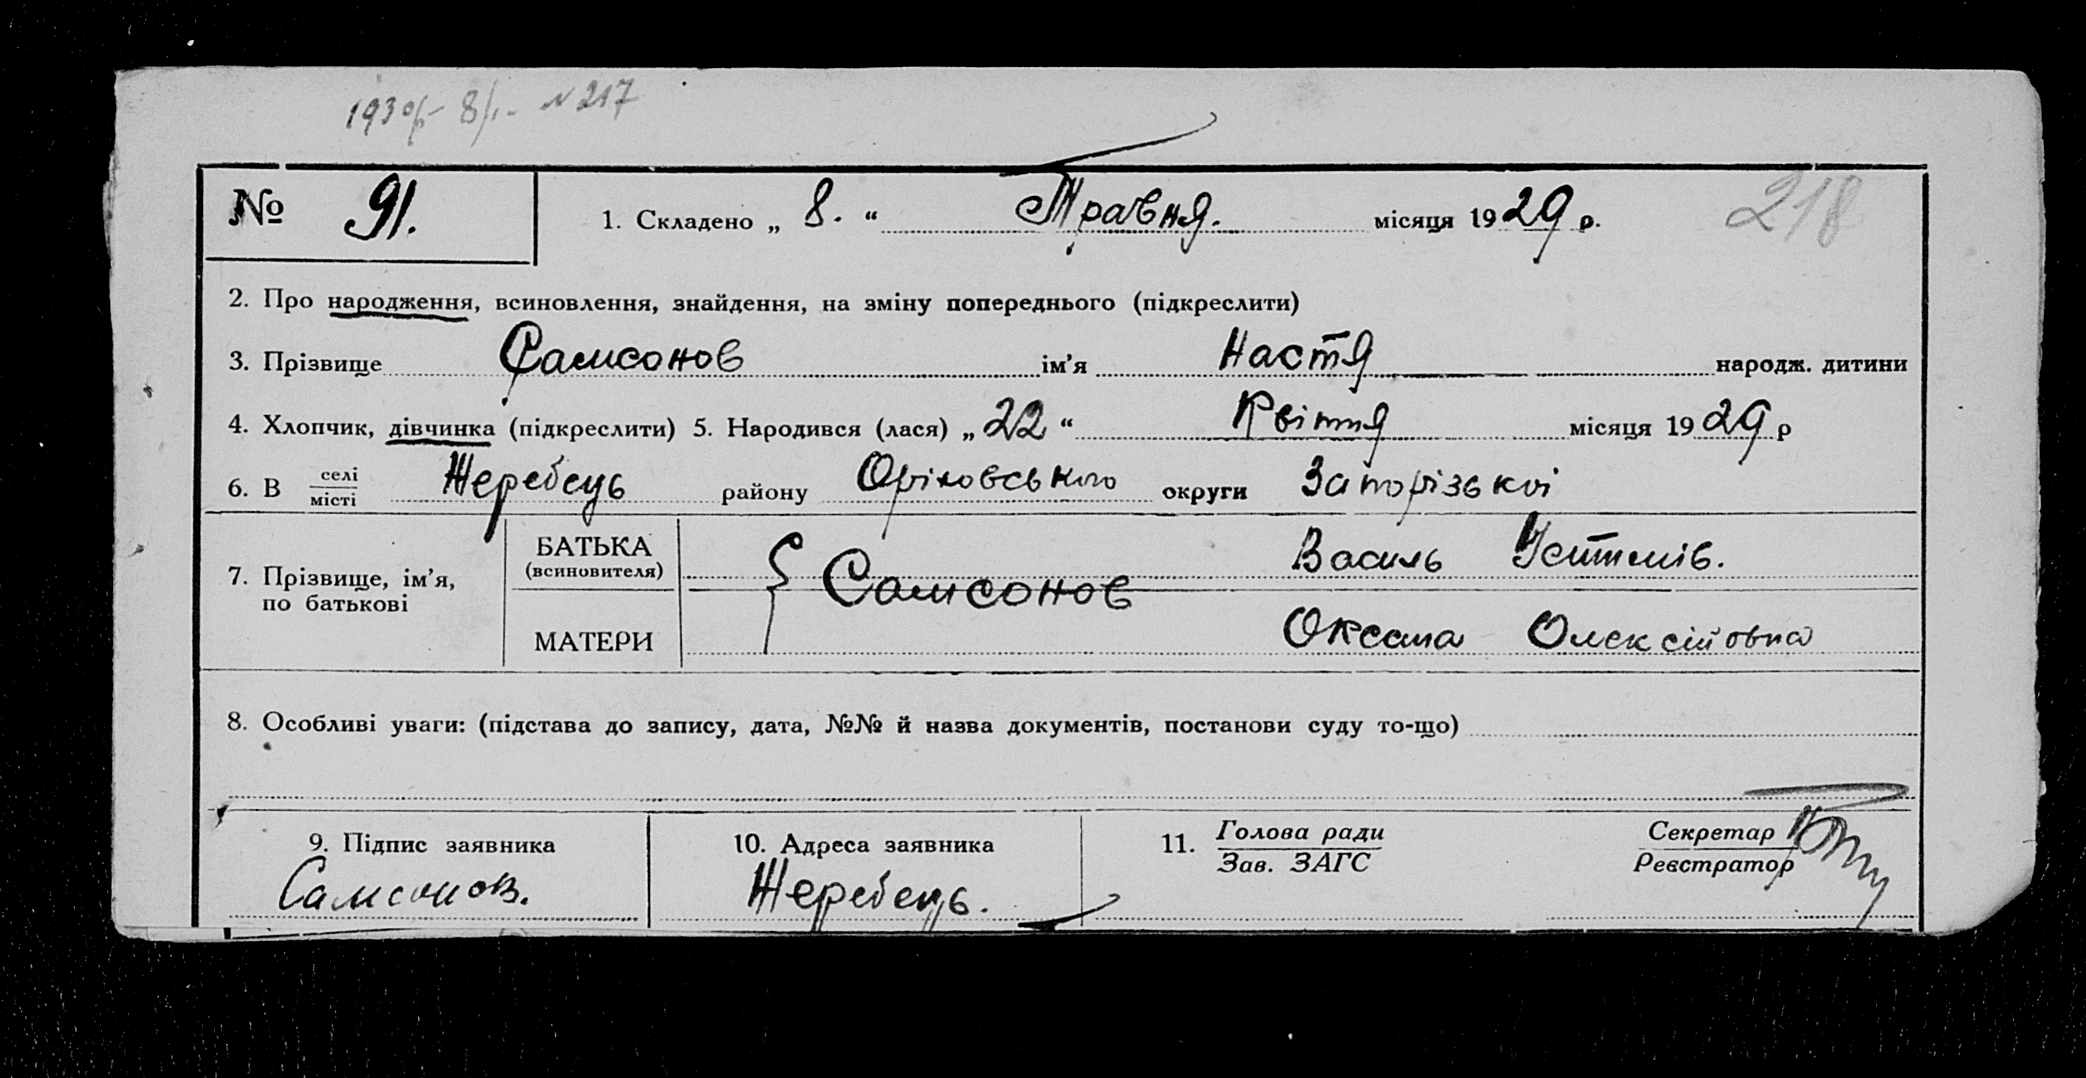 1930р- 8/1- №217
№ 91. 1. Складено „ 8. “ Травня. місяця 1929 р. 218
2. Про народження, всиновлення, знайдення, на зміну попереднього (підкреслити)
3. Прізвище Самсонов ім’я Настя народж. дитини
4. Хлопчик, дівчинка (підкреслити) 5. Народився (лася) „ 22 “ Квітня місяця 1929 р
6. В селі Жеребець району Оріховського округи Запорізької
місті
7. Прізвище, ім’я, по батькові
БАТЬКА (всиновителя) Самсонов Василь
МАТЕРИ Оксана Олексійовна
8. Особливі уваги: (підстава до запису, дата, №№ й назва документів, постанови суду то-що)
9. Підпис заявника 10. Адреса заявника 11. Голова ради Секретар
Зав. ЗАГС Реєстратор
Самсонов. Жеребець.